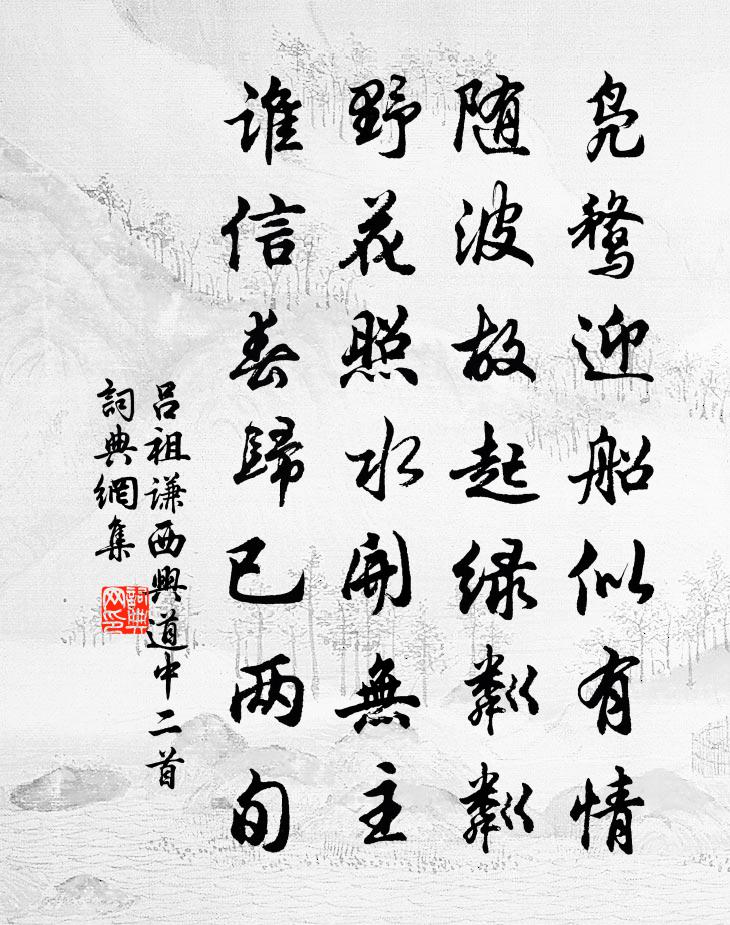 凫鹜迎船似有情
随波故起绿粼粼
野花照水開無主
谁信春歸已两旬
吕祖谦西興道中二首
詞典網集
詞典网印